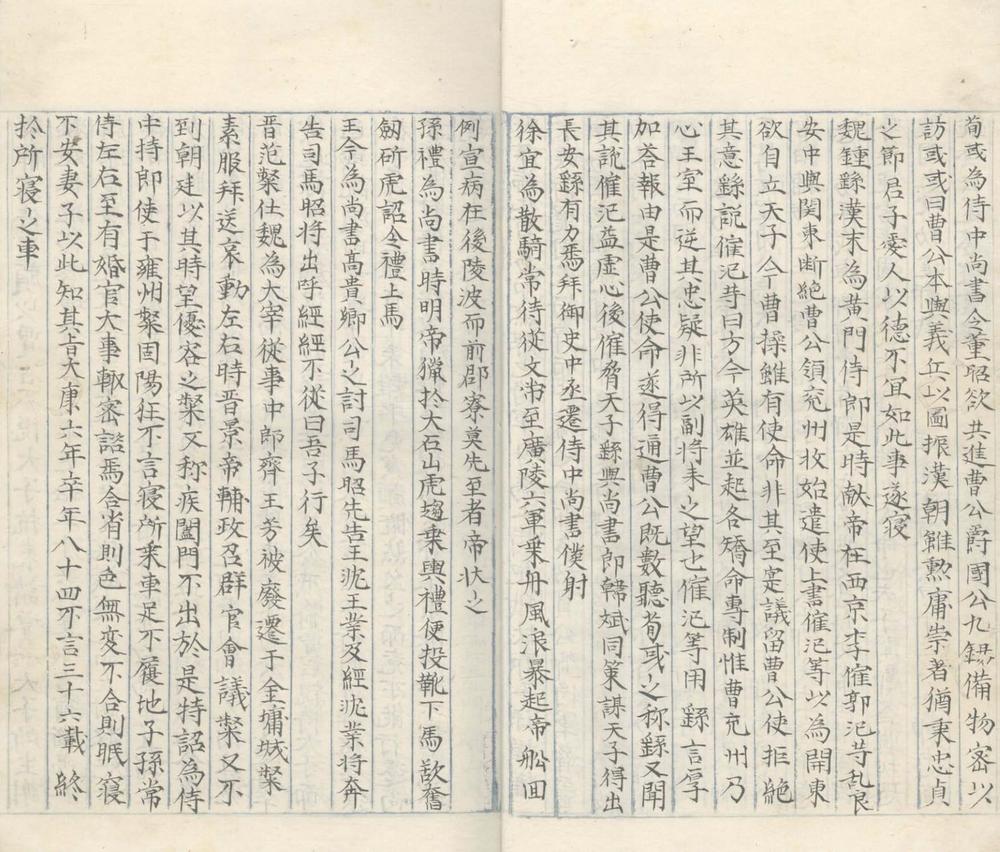 荀彧為侍中尚書令董昭欲共進曹公爵國公九錫備物密以
訪彧彧曰曹公本興義兵以圖振漢朝雖勲庸崇著猶秉忠貞
之節君子愛人以德不宜如此事遂寢
魏鍾繇漢末為黃門侍郎是時献帝在西京李傕郭汜䒭乱長
安中與関東断絶曹公領兖州牧始遣使上書傕汜等以為関東
欲自立天子今曹操雖有使命非其至寔議留曹公使拒絶
其意繇說傕汜䒭曰方今英雄並起各矯命專制惟曹兖州乃
心王室而逆其忠疑非所以副将来之望也傕汜等用繇言厚
加荅報由是曹公使命遂得通曹公既數聽荀彧之称繇又聞
其說傕汜益虚心後傕脅天子繇與尚書郎韓斌同策謀天子得出
長安繇有力焉拜御史中丞遷侍中尚書僕射
徐宜為散騎常侍從文帝至廣陵六軍乗舟風浪暴起帝船回
倒宣病在後陵波而前郡寮莫先至者帝壮之
孫禮為尚書時明帝獵扵大石山虎趨乗輿禮便投鞭下馬欲奮
劒斫虎詔令禮上馬
王今為尚書高貴卿公之討司馬昭先告王沈王業及經沈業将奔
告司馬昭将出呼經經不從曰吾子行矣
晋范粲仕魏為大宰從事中郎齊王芳被廢遷于金墉城粲
素服拜送哀動左右時晋景帝輔政召群官會議粲又不
到朝廷以其時望優容之粲又称疾闔門不出於是特詔為侍
中持郎使于雍州粲固陽狂不言寝所乗車足不履地子孫常
侍左右至有婚官大事輙密諮焉合者則色無变不合則眠寝
不安妻子以此知其㫖大康六年卒年八十四不言三十六載終
扵所寝之車